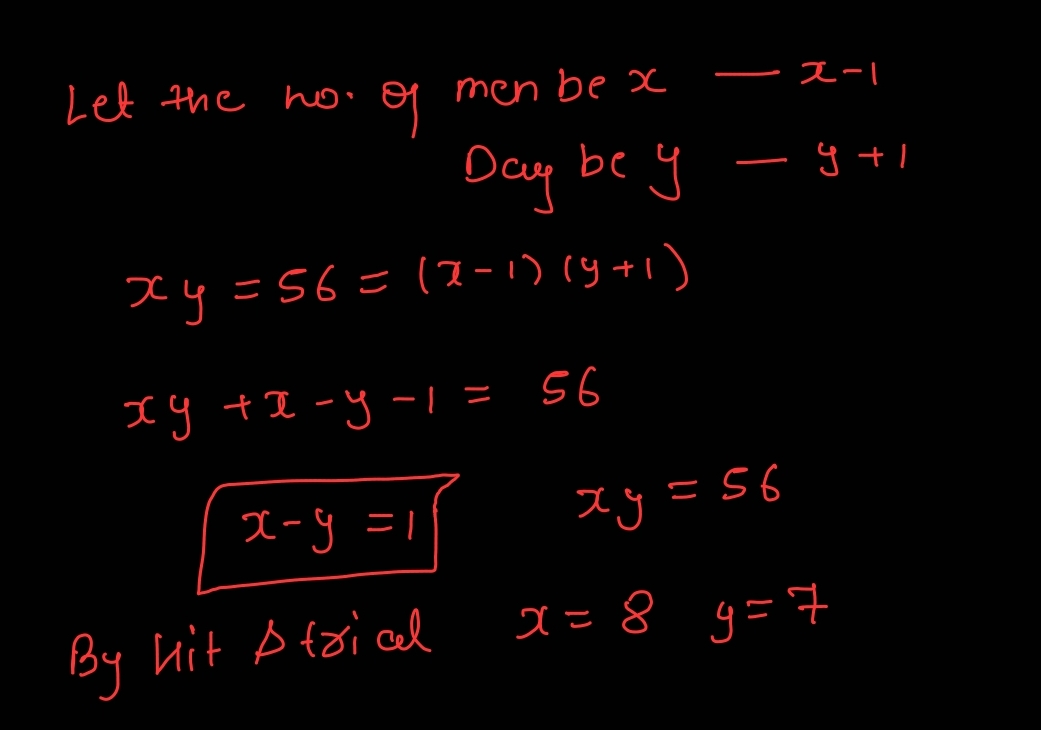 Let the no. of men be x — x-1
Day be y — y+1
xy = 56 = (x-1) (y+1)
xy + x - y - 1 = 56
x-y = 1 xy = 56
By hit & trial x = 8 y = 7